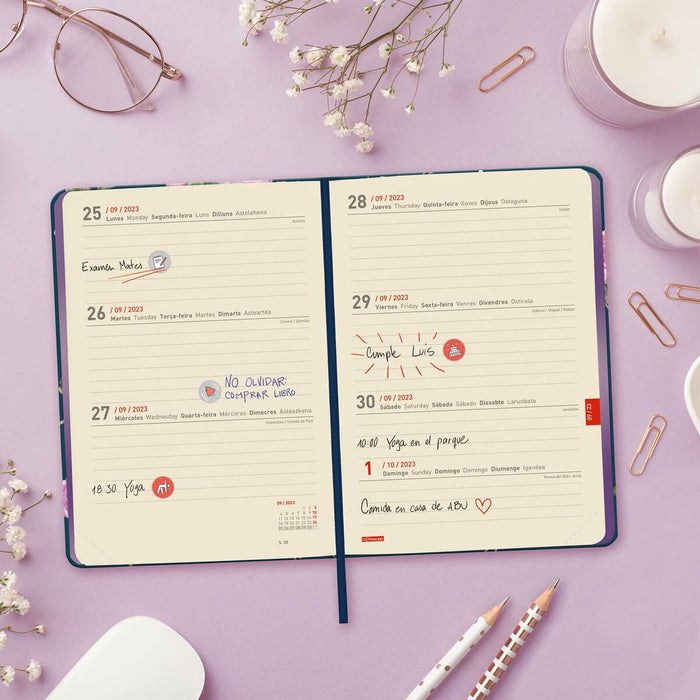 25 / 09 / 2023
Lunes Monday Segunda-feira Luns Dilluns Astelehena
Aurelia
Examen Mates
26 / 09 / 2023
Martes Tuesday Terça-feira Martes Dimarts Asteartea
Cosme / Damián
NO OLVIDAR:
COMPRAR LIBRO
27 / 09 / 2023
Miércoles Wednesday Quarta-feira Mércores Dimecres Asteazkena
Florentino / Vicente de Paúl
18:30 Yoga
09 / 2023
1 2 3
4 5 6 7 8 9 10
11 12 13 14 15 16 17
18 19 20 21 22 23 24
25 26 27 28 29 30
S. 39
28 / 09 / 2023
Jueves Thursday Quinta-feira Xoves Dijous Osteguna
29 / 09 / 2023
Viernes Friday Sexta-feira Venres Divendres Ostirala
Gabriel / Miguel / Rafael
Cumple Luis
30 / 09 / 2023
Sábado Saturday Sábado Sábado Dissabte Larunbata
Jerónimo
10:00 Yoga en el parque
1 / 10 / 2023
Domingo Sunday Domingo Domingo Diumenge Igandea
Teresa del Niño Jesús
Comida en casa de ABU
Finocam
09 / 23